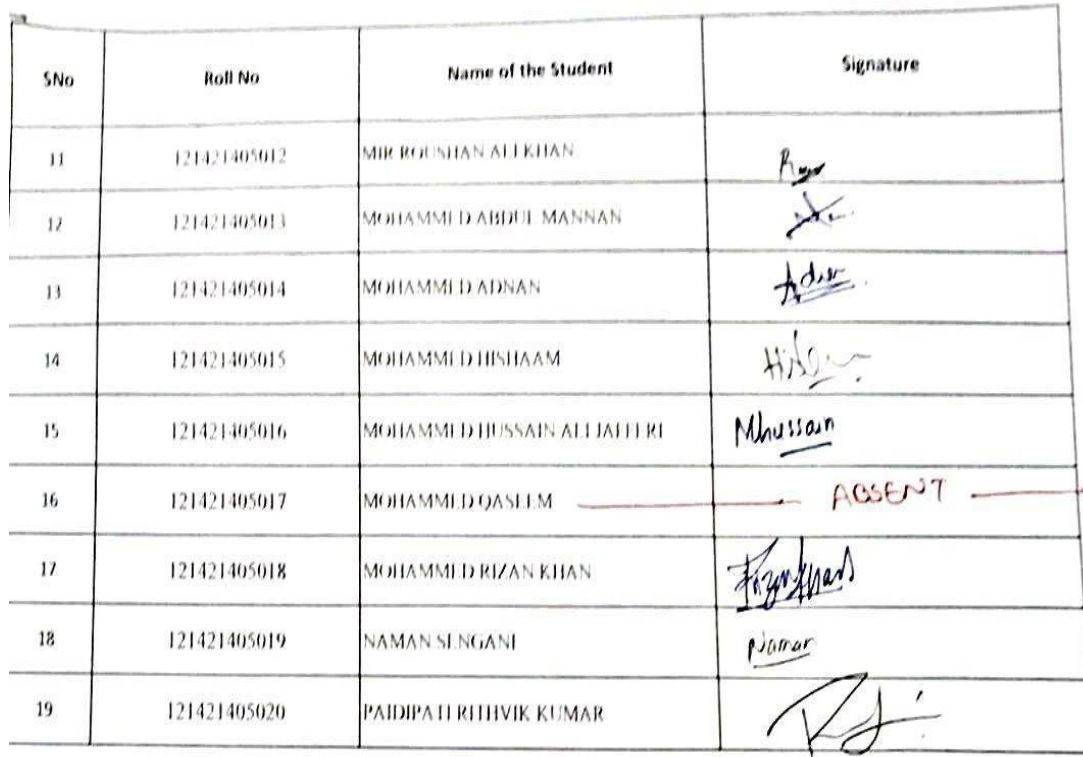 SNo Roll No Name of the Student Signature
11 121421405012 MIR ROUSHAN ALI KHAN
12 121421405013 MOHAMMED ABDUL MANNAN
13 121421405014 MOHAMMED ADNAN
14 121421405015 MOHAMMED HISHAAM
15 121421405016 MOHAMMED HUSSAIN ALI JAFFERI Mhussain
16 121421405017 MOHAMMED QASEEM ABSENT
17 121421405018 MOHAMMED RIZAN KHAN
18 121421405019 NAMAN SENGANI Naman
19 121421405020 PAIDIPATI RITHVIK KUMAR